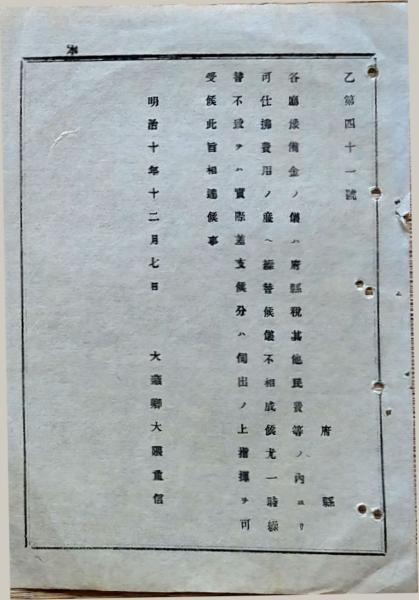 乙第四十一號
府縣
各廳豫備金ノ儀ハ府縣税其他民費等ノ內ヨリ
可仕拂費用ノ廉ヘ繰替候儀不相成候尤一時繰
替不致テハ實際差支候分ハ伺出ノ上指揮ヲ可
受候此旨相達候事
明治十年十二月七日
大藏卿大隈重信